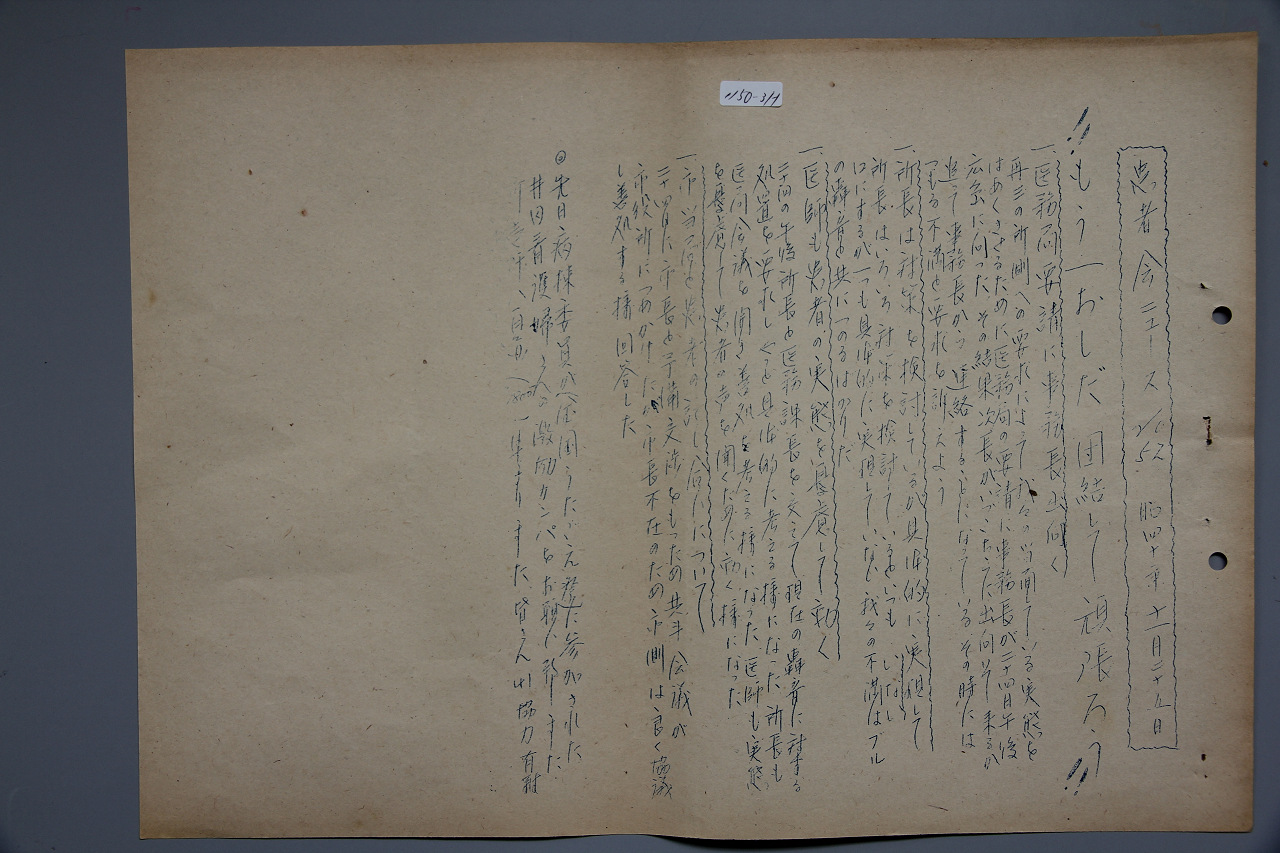 患者会ニュース No62 昭四十年十一月二十五日
!!もう一おしだ 団結して 頑張ろう!!
一、医務局要請に事務長出向く
再三の所側への要求によって 我々の当面している実態を
はあくさせるために医務局の要請に事務長が二十四日午後
広島に向った その結果次長が 出向いて来るか
追って事務長から連絡することになっている その時には
つもる不満と要求を訴えよう
一、所長は対策を検討しているが具体的に実現していない
所長はいろいろ対策を検討しているといつも
口にするが一つも具体的に実現していない 我々の不満はブル
の轟音と共につのるばかりだ
一、医師も患者の実態を憂慮して動く
二十四の午後所長と医務課長を交えて現在の轟音に対する
処置を要求し やっと具体的に考える様になった 所長も
医局会議を開き善処を考える様になった 医師も実態
を憂慮して患者の声を聞くために動く様になった
一、市当局と患者の話し合いについて
二十四日に市長と予備交渉をもつため共斗会議が
市役所につめかけたが市長不在のため市側は良く協議
し善処する様回答した
◎ 先日病棟委員が 参加された
井田看護婦さんの激励カンパをお願い致しました
集まりました 皆さん 協力有難
1150-3/1